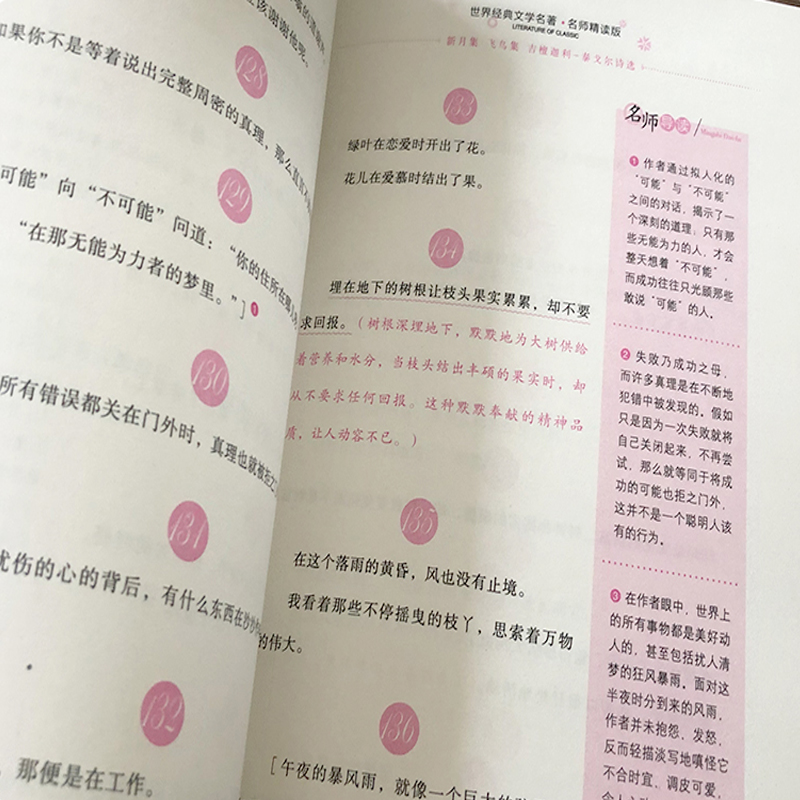 该谢谢他呢。
如果你不是等着说出完整周密的真理，那么真言
128
129
可能”向“不可能”问道：“你的住所在哪
“在那无能为力者的梦里。”]❶
130
所有错误都关在门外时，真理也就被拒之
131
忧伤的心的背后，有什么东西在沙沙
132
那便是在工作。
世界经典文学名著·名师精读版
LITERATURE OF CLASSIC
新月集 飞鸟集 吉檀迦利-泰戈尔诗选
133
绿叶在恋爱时开出了花。
花儿在爱慕时结出了果。
134
埋在地下的树根让枝头果实累累，却不要
求回报。（树根深埋地下，默默地为大树供给
着营养和水分，当枝头结出丰硕的果实时，却
从不要求任何回报。这种默默奉献的精神品
质，让人动容不已。）
135
在这个落雨的黄昏，风也没有止境。
我看着那些不停摇曳的枝丫，思索着万物
的伟大。
136
[午夜的暴风雨，就像一个巨大的
名师导读
Mingshi Daodu
❶ 作者通过拟人化的
“可能”与“不可能”
之间的对话，揭示了一
个深刻的道理：只有那
些无能为力的人，才会
整天想着“不可能”，
而成功往往只光顾那些
敢说“可能”的人。
❷ 失败乃成功之母，
而许多真理是在不断地
犯错中被发现的。假如
只是因为一次失败就将
自己关闭起来，不再尝
试，那么就等同于将成
功的可能也拒之门外，
这并不是一个聪明人该
有的行为。
❸ 在作者眼中，世界上
的所有事物都是美好动
人的，甚至包括扰人清
梦的狂风暴雨。面对这
半夜时分到来的风雨，
作者并未抱怨、发怒，
反而轻描淡写地嗔怪它
不合时宜、调皮可爱，